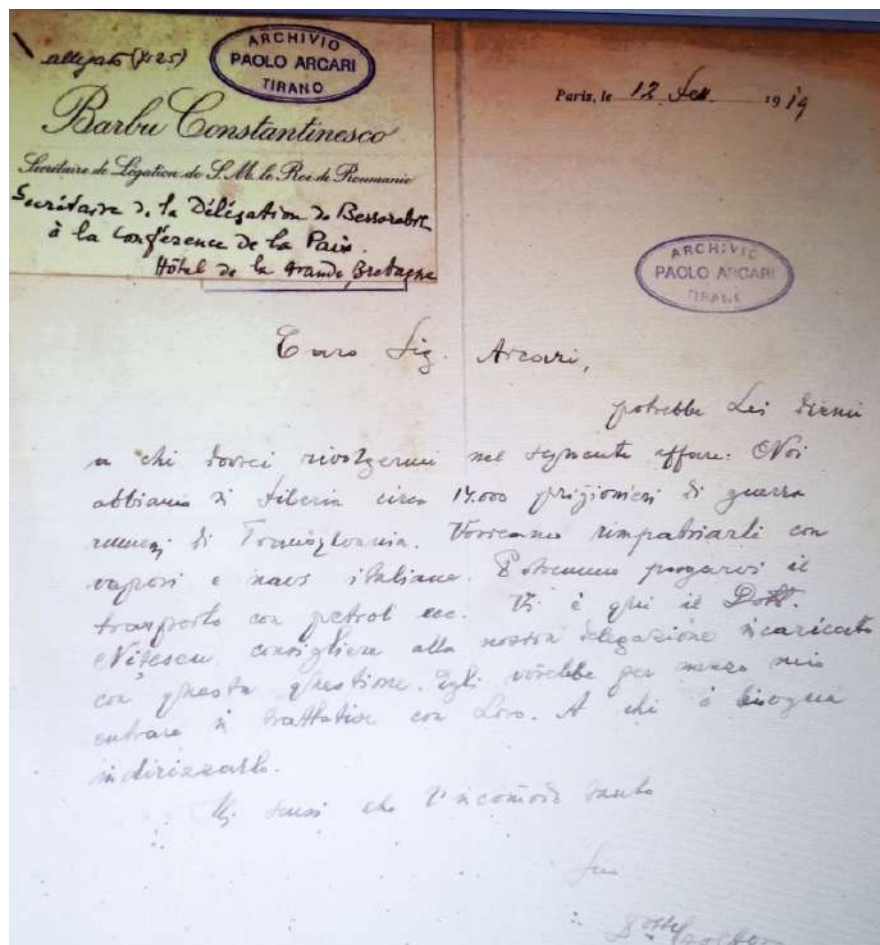 allegato (4.25)
ARCHIVIO
PAOLO ARCARI
TIRANO
Barbu Constantinesco
Secrétaire de Légation de S. M. le Roi de Roumanie
Secrétaire de la Délégation de Bessarabie
à la Conférence de la Paix.
Hôtel de la Grande Bretagne
Paris, le 12 1919
ARCHIVIO
PAOLO ARCARI
TIRANO
Caro Sig. Arcari,
potrebbe Lei dirmi
a chi dovrei rivolgermi nel seguente affare: Noi
abbiamo in Siberia circa 14.000 prigionieri di guerra
rumeni di Transilvania. Vorremmo rimpatriarli con
vapori e navi italiane. Potremmo pagarvi il
trasporto con petrol ecc. Vi è qui il Dott.
Nițescu consigliere alla nostra delegazione incaricato
con questa questione. Egli vorebbe per mezzo mio
entrare in trattative con Loro. A chi è bisogna
indirizzarlo.
Mi scusi che l'incomodo tanto
Suo